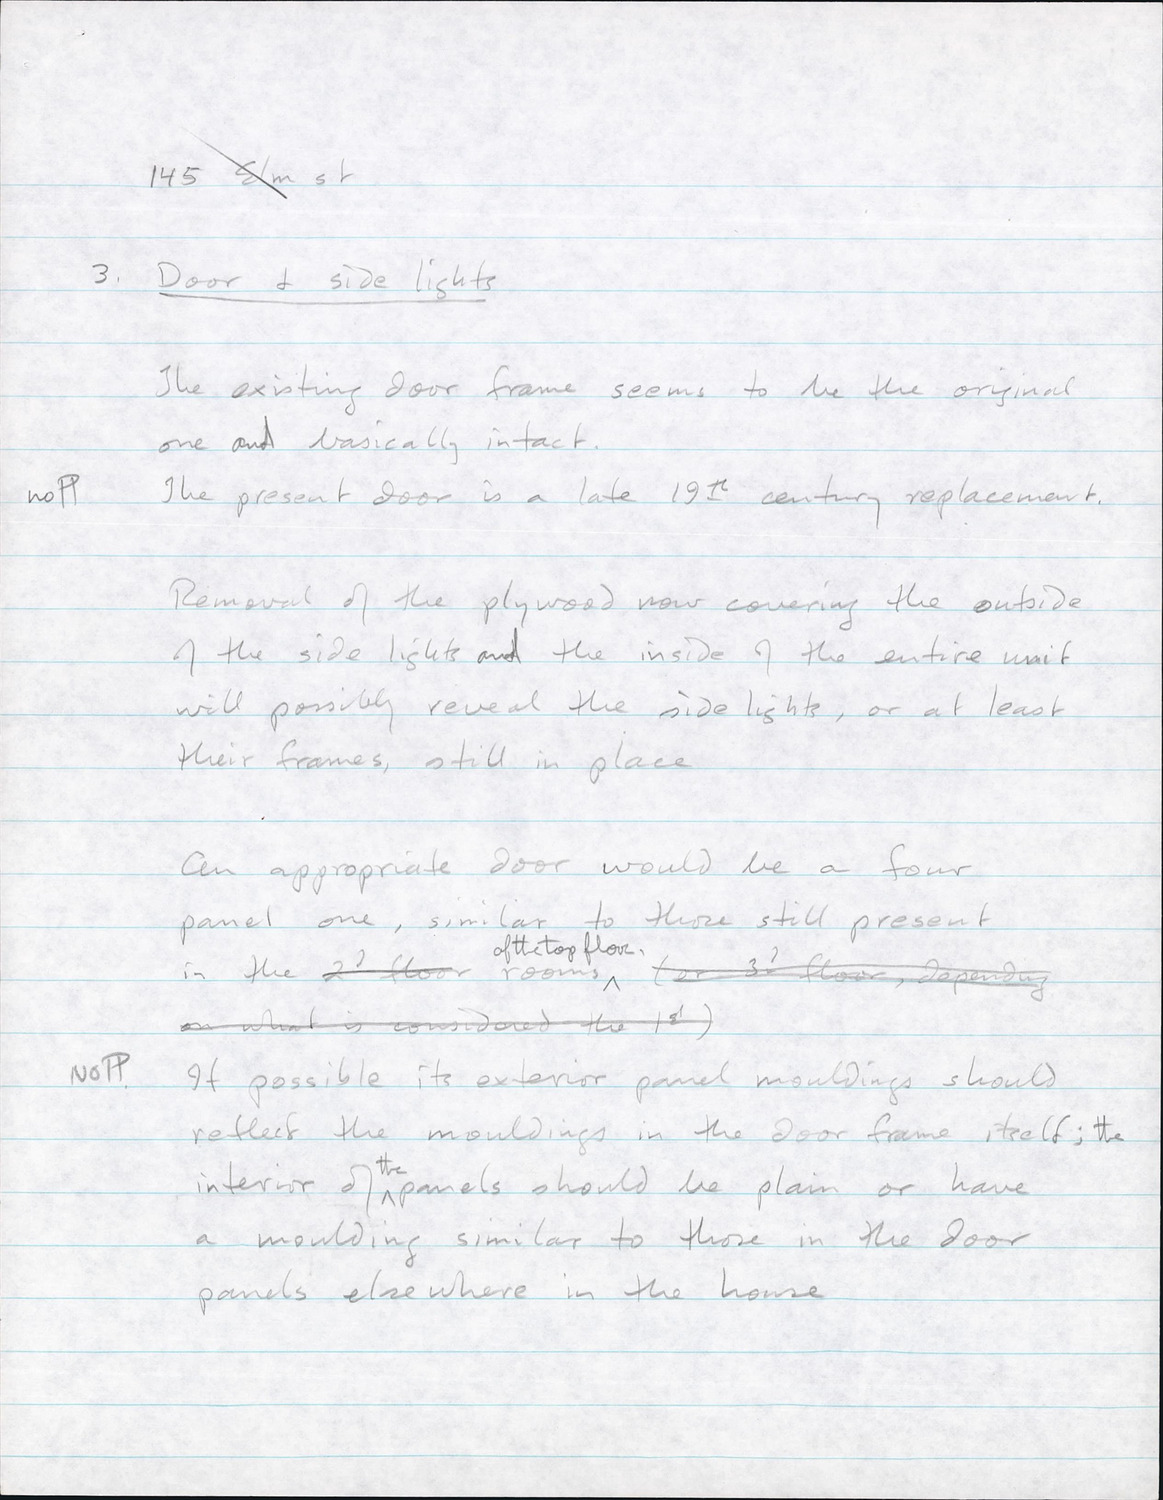 145 Elm st
3. Door & side lights
The existing door frame seems to be the original
one and basically intact.
no ¶ The present door is a late 19th century replacement.
Removal of the plywood now covering the outside
of the side lights and the inside of the entire unit
will possibly reveal the side lights, or at least
their frames, still in place
An appropriate door would be a four
panel one, similar to those still present
of the top floor.
in the 2d floor rooms (or 3d floor, depending
on what is considered the 1st)
No ¶ If possible its exterior panel mouldings should
reflect the mouldings in the door frame itself; the
the
interior of panels should be plain or have
a moulding similar to those in the door
panels elsewhere in the house